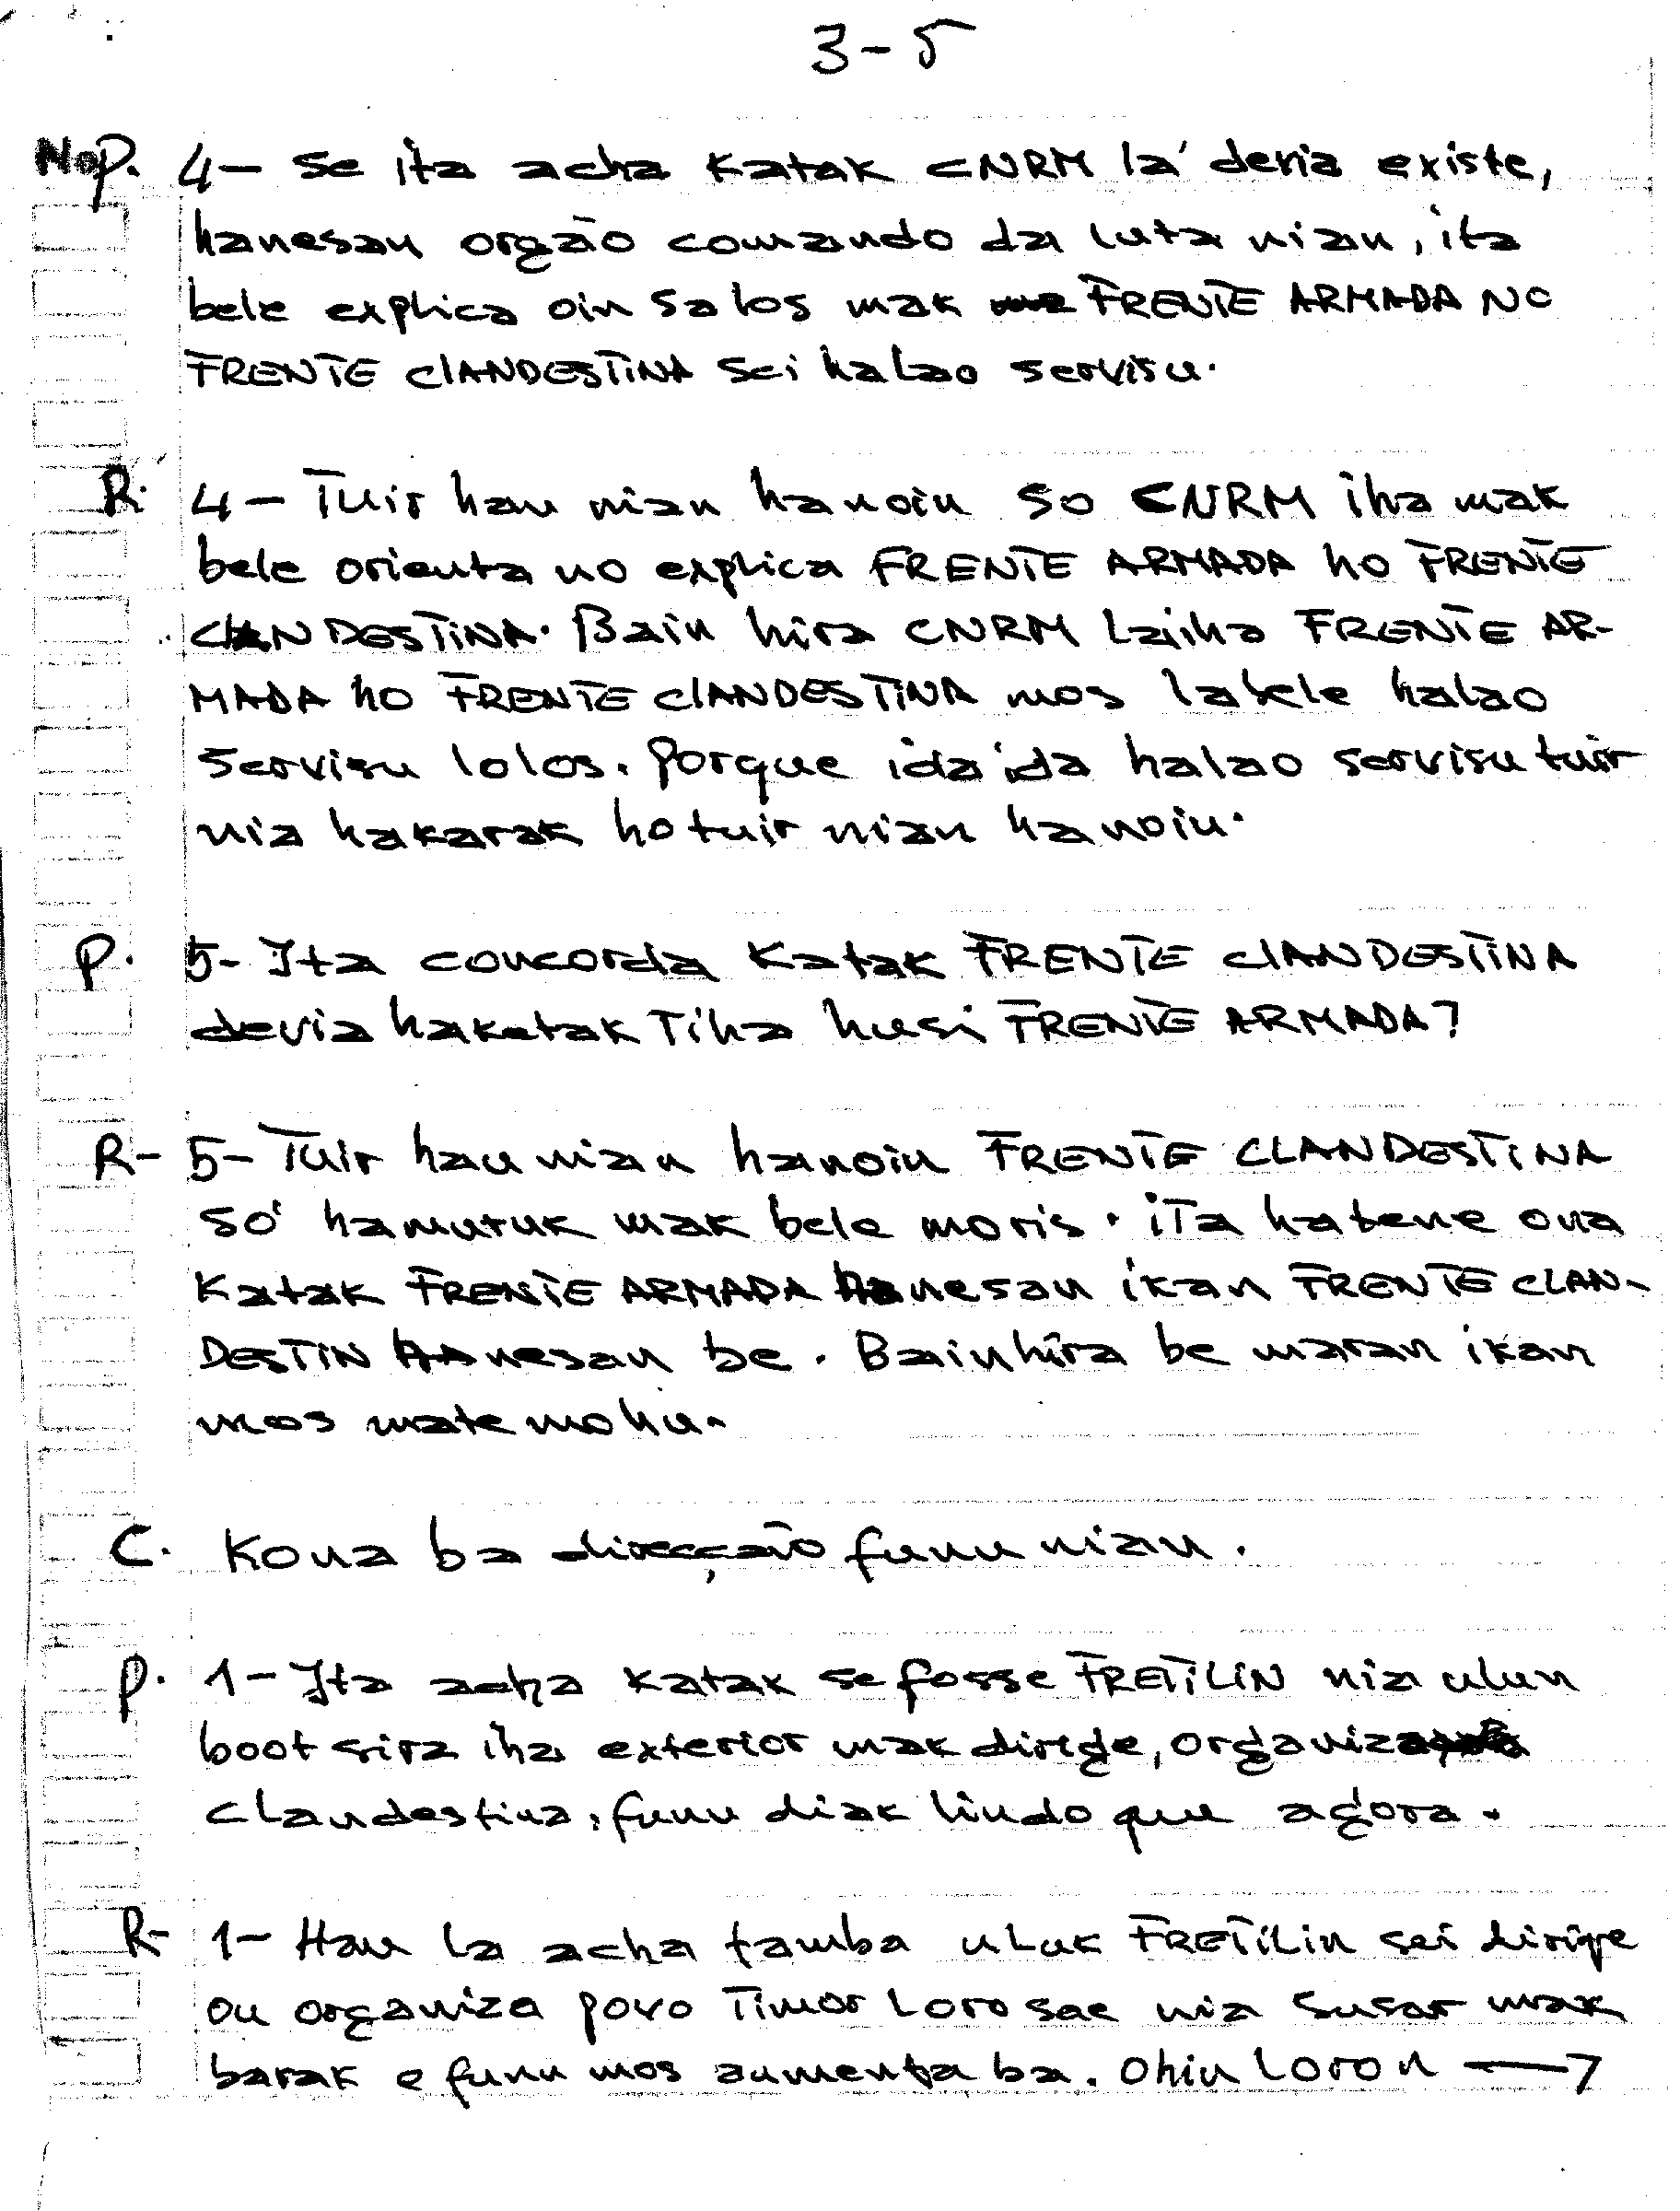 3-5
P. 4- Se ita acha Katak CNRM la' devia existe,
hanesan orgão comando da luta nian, ita
bele explica oin sa los mak FRENTE ARMADA NO
FRENTE CLANDESTINA sei halao servisu.
R. 4- Tuir hau nian hanoin so CNRM iha mak
bele orienta no explica FRENTE ARMADA ho FRENTE
CLANDESTINA. Bain hira CNRM laiha FRENTE AR-
MADA ho FRENTE CLANDESTINA mos labele halao
servisu lolos. Porque ida ida halao servisu tuir
nia hakarak ho tuir nian hanoin.
P. 5- Ita concorda Katak FRENTE CLANDESTINA
devia haketak Tiha husi FRENTE ARMADA?
R- 5- Tuir hau nian hanoin FRENTE CLANDESTINA
so' hamutuk mak bele moris. ita hatene ona
Katak FRENTE ARMADA hanesan ikan FRENTE CLAN-
DESTIN hanesan be. Bainhira be maran ikan
mos mate mohu.
C. Kona ba direcção funu nian.
P. 1- Ita acha Katak se fosse FRETILIN nia ulun
boot sira iha exterior mak dirige, organiza
clandestina, funu diak lindo que agora.
R- 1- Hau la acha tamba uluk FRETILIN sei dirige
ou organiza povo Timor Loro sae nia susar mak
barak e funu mos aumenta ba. Ohin Loron →